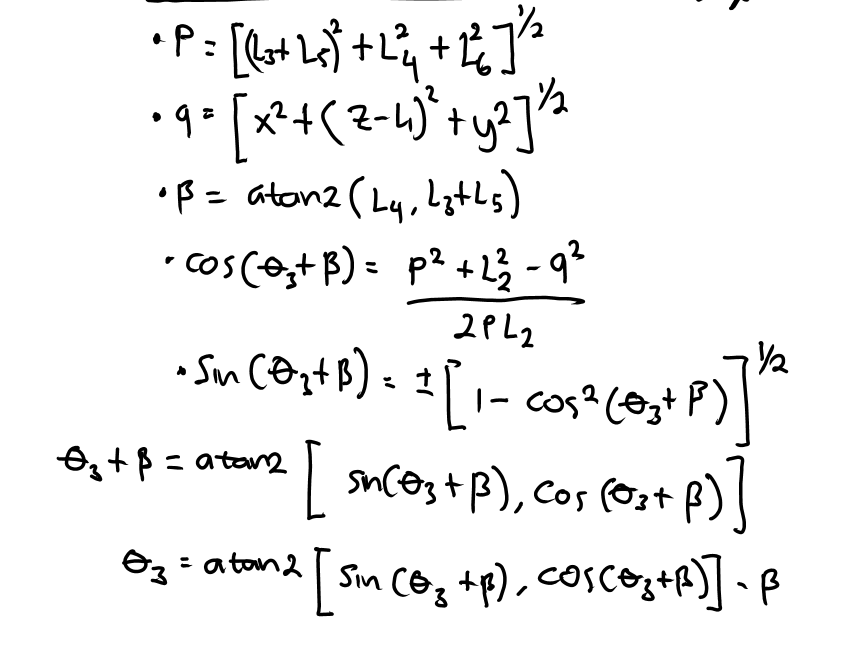 • P = [(L₃+L₅)² + L₄² + L₆²]^½
• q = [x² + (z-L₁)² + y²]^½
• β = atan2(L₄, L₃+L₅)
• cos(θ₃+β) = (P² + L₂² - q²) / (2PL₂)
• Sin(θ₃+β) = ± [1 - cos²(θ₃+β)]^½
θ₃ + β = atan2 [sin(θ₃+β), cos(θ₃+β)]
θ₃ = atan2 [sin(θ₃+β), cos(θ₃+β)] - β